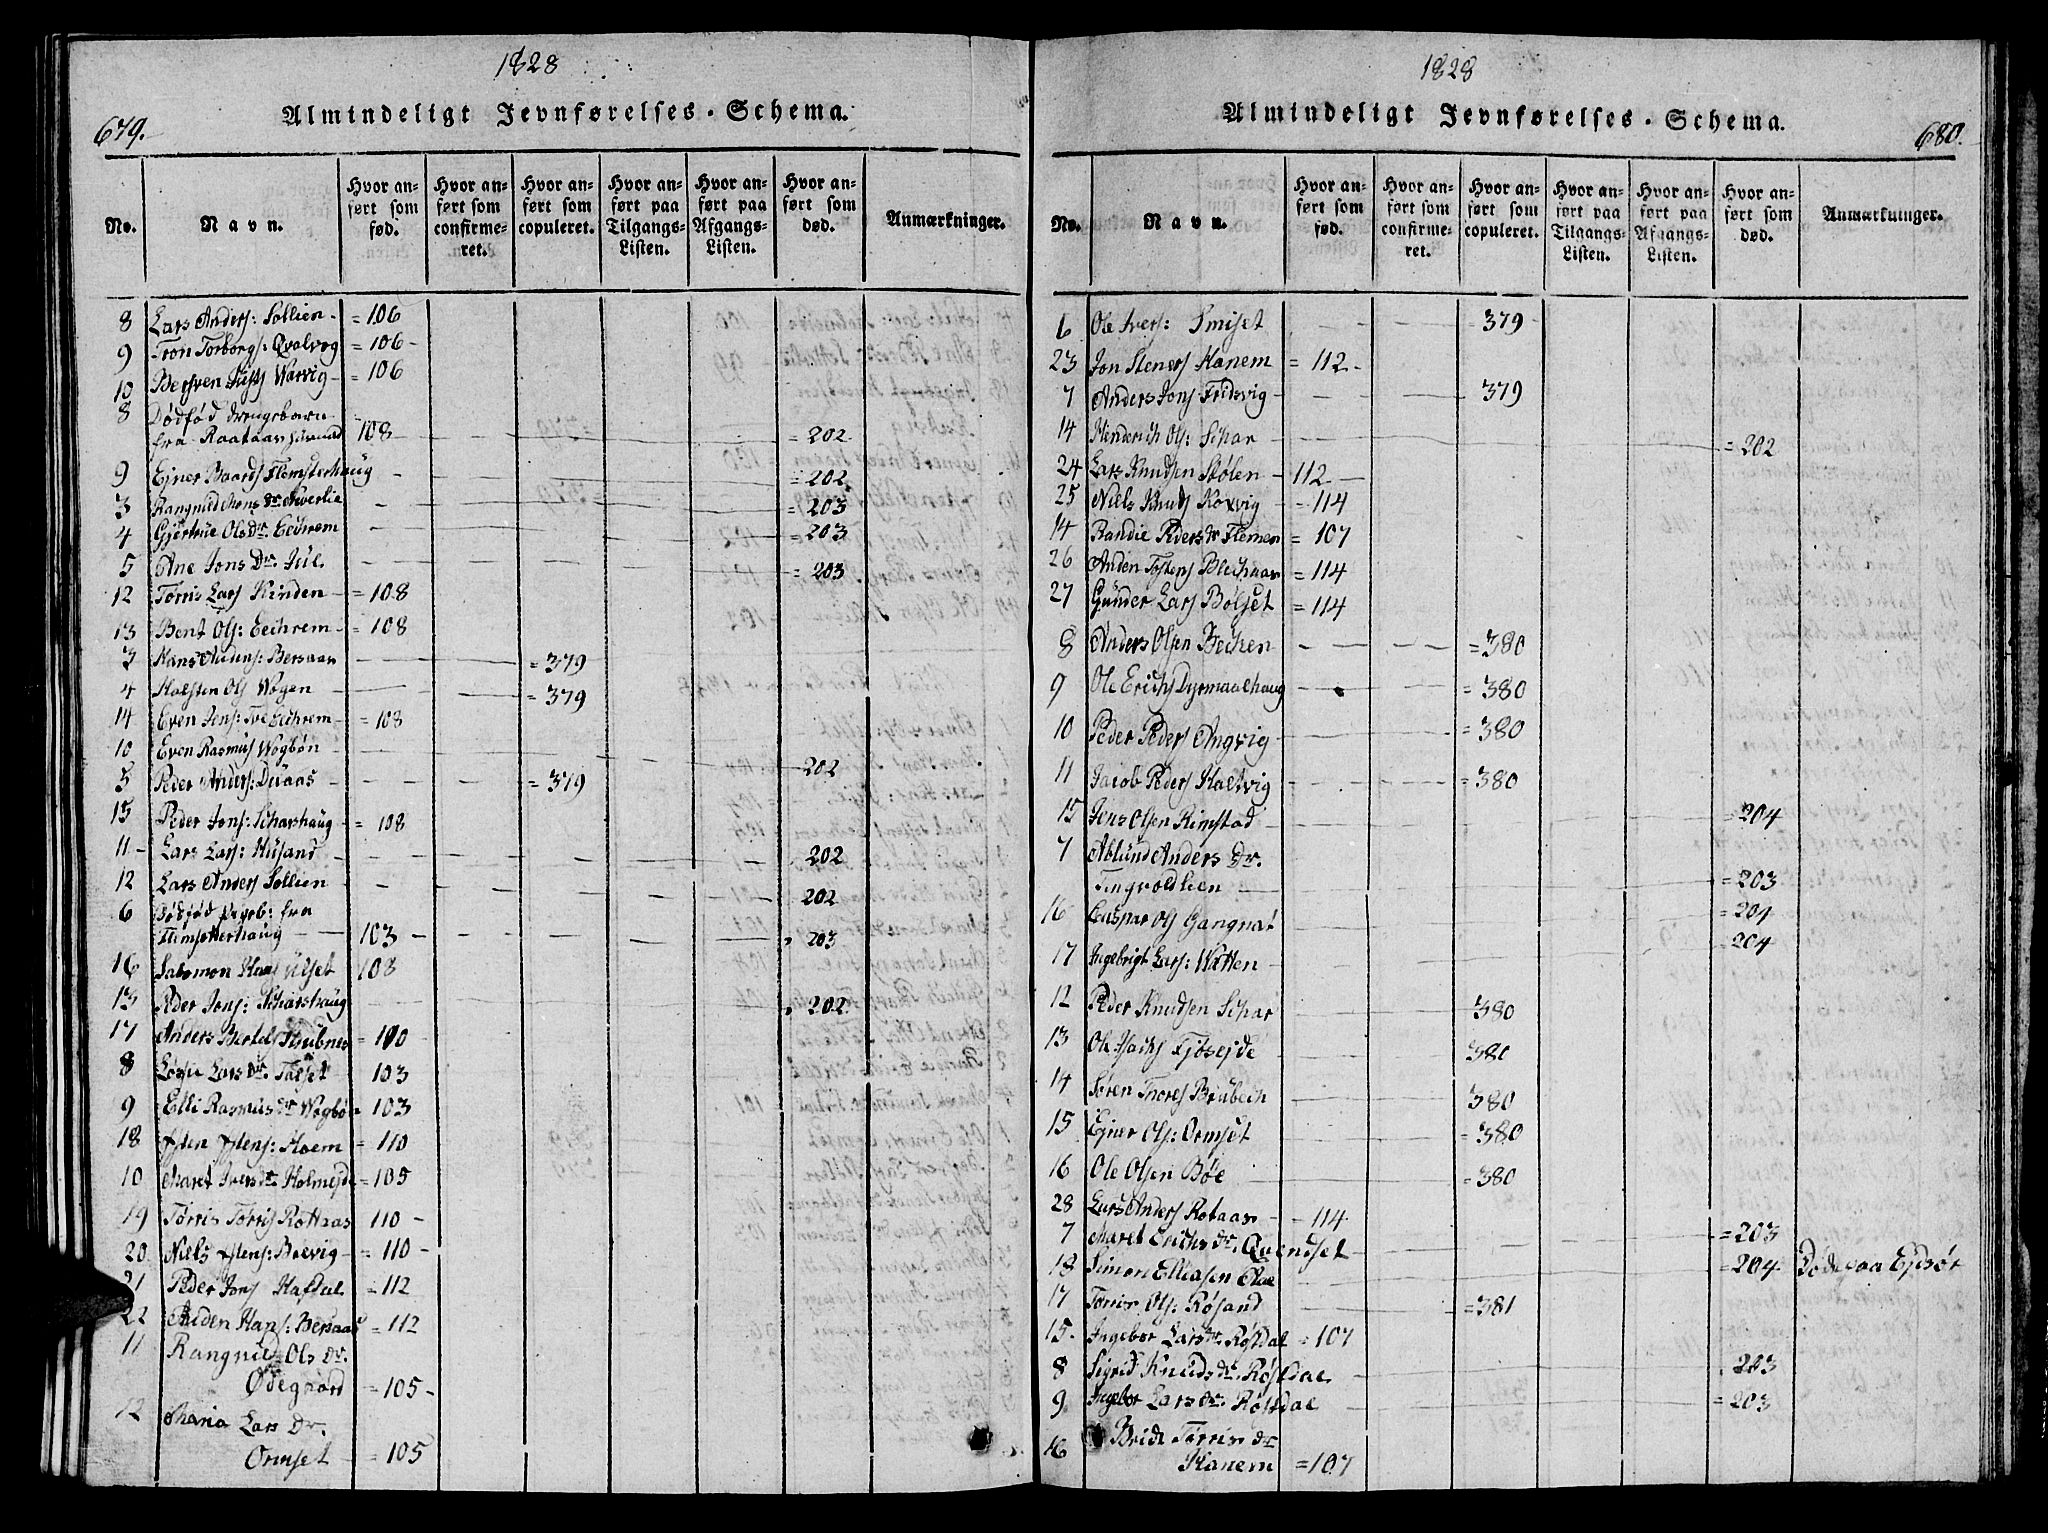 1828
679.
Almindeligt Jevnførelses-Schema.
No.
Navn.
Hvor anført som fød.
Hvor anført som confirmeret.
Hvor anført som copuleret.
Hvor anført paa Tilgangs-Listen.
Hvor anført paa Afgangs-Listen.
Hvor anført som død.
Anmærkninger.
8 Lars Anders: Sollien - = 106
9 Tron Torborgs: Qvalvog = 106 -
10 Bersven Warvig - = 106
8 Dødfød Drengebarn
fra 108 - = 202
9 Ejner Baards Flemsterhaug - = 202
3 Rangnild Mons Dr. - = 203
4 Gjertrue Ols Dr. Eechrem - = 203
5 Ane Jons Dr. Jul - = 203
12 Tørris Lars Kinden - = 108
13 Bent Ols: Eechrem - = 108
3 Hans Audens: Bersaas - = 379
4 Halsten Ols Wogen - = 379
14 Even Jens: Eechrem - = 108
10 Even Rasmus Wogbøn - 202
5 Peder Anders: Duaas - = 379
15 Peder Jons: Scharshaug - = 108
11 - Lars Lars: Husand - 202
12 Lars Anders Sollien - 202
6 Dødfød Pigeb: fra
Flemsetterhaug - 103 - 203
16 Salomon Hans Ulset 108
13 Peder Jons: Scharshaug - 202
17 Anders Bertels = 110
8 Lars Dr. Talset 103
9 Elli Rasmus Dr Wogbøn = 103
18 Hoem = 110
10 Maret Ivers Dr. Holmejde = 105
19 Tørris Tørris Rottaas 110 -
20 Niels Boevig - = 110 -
21 Peder Jons Hafdal = 112
22 Auden Hans: Bersaas = 112
11 Rangnild Ols Dr.
Ødegaard = 105 -
12 Maria Lars Dr.
Ormset = 105
1828
680.
Almindeligt Jevnførelses-Schema.
No.
Navn.
Hvor anført som fød.
Hvor anført som confirmeret.
Hvor anført som copuleret.
Hvor anført paa Tilgangs-Listen.
Hvor anført paa Afgangs-Listen.
Hvor anført som død.
Anmærkninger.
6 Ole Ivers: Smiset - = 379
23 Jon Steners Hanem = 112 -
7 Anders Jons Fridsvig - = 379
14 Henderich Ols: Schar - = 202
24 Lars Knudsen Stølen - 112 -
25 Niels Knuds Koxvig - 114
14 Randie Peders Dr Flemen = 107
26 Anden Tostens Blechaas = 114
27 Gunder Lars Bølset = 114
8 Anders Olsen Bechen - = 380
9 Ole Erichs Dyrmaalhaug - = 380
10 Peder Peders Angvig - = 380
11 Jacob Peders Haltvig - = 380
15 Jens Olsen Rimstad - = 204
7 Ablund Anders Dr.
Tingvoldlien - = 203
16 Caspar Ols Gangnat - = 204
17 Ingebrigt Lars: Watten - = 204
12 Peder Knudsen Schar - 380
13 Ole Isachs Fjøsejde - 380
14 Søren Thores Brubech - 380
15 Ejner Ols: Ormset - = 380
16 Ole Olsen Bøe - = 380
28 Lars Anders Rotaas - - 114
7 Maret Erichs Dr. Qvendset - = 203
18 Simon Elliasen - = 204
17 Ols: Røsand - = 381
15. Ingebor Lars Dr. Røstdal = 107
8 Sigrid Knuds Dr. Røstdal - 203
9 Ingebor Lars Dr. Røstdal - = 203
16 Bride Tørris Dr
Hanem = 107